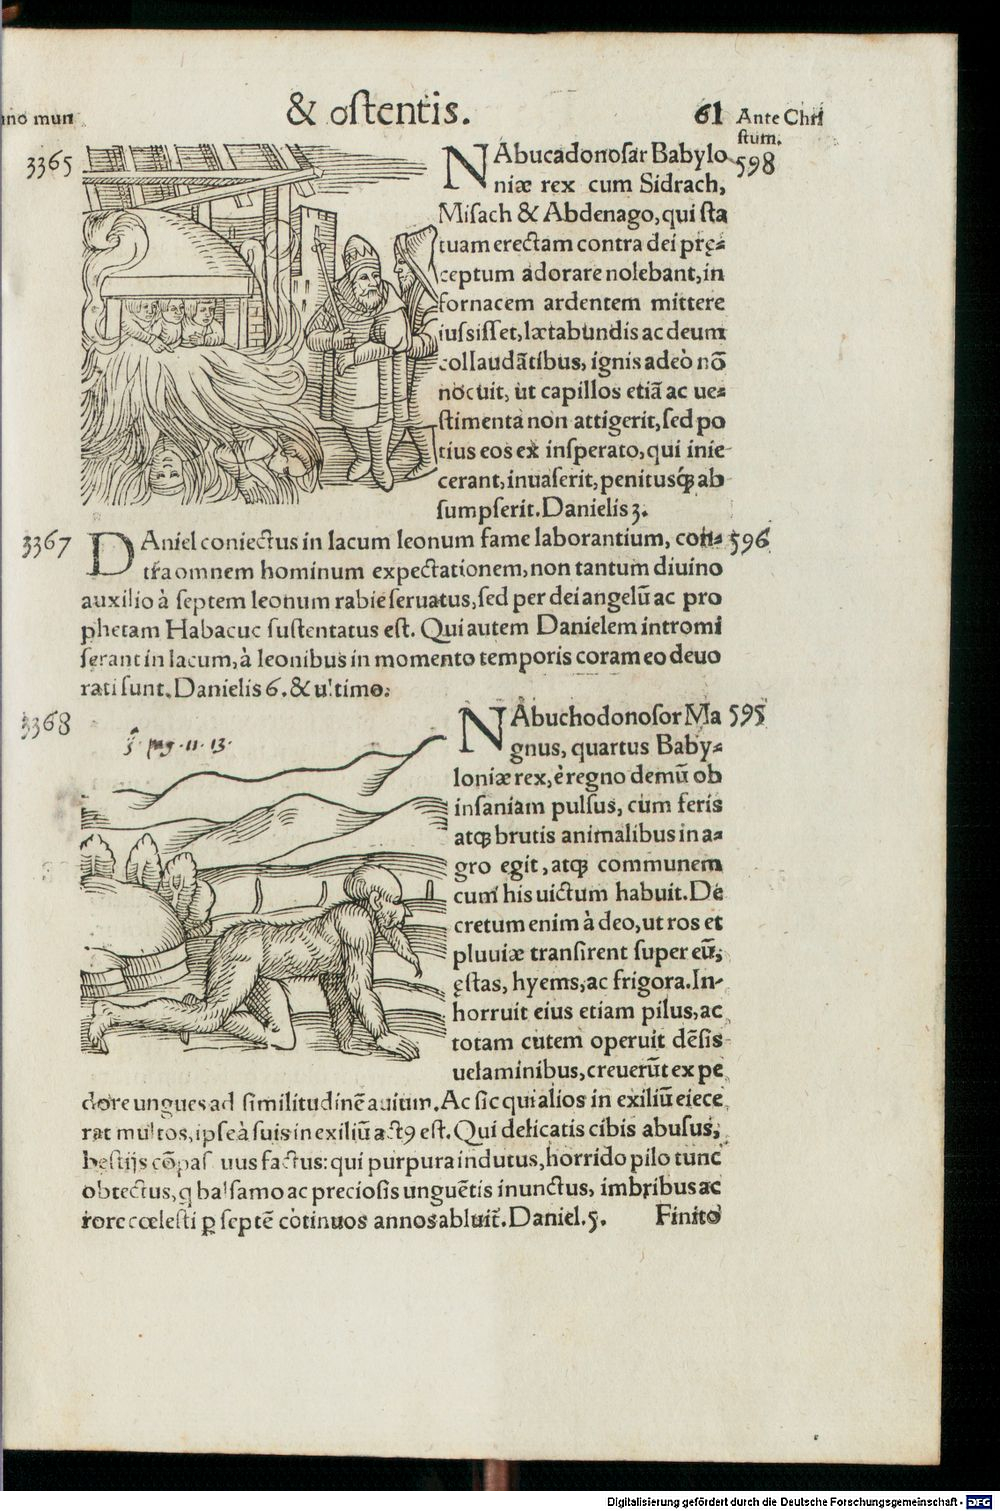 & oſtentis. 61
Anno mun
Ante Chri
ſtum.
3365
598
NAbucadonoſar Babylo
niæ rex cum Sidrach,
Miſach & Abdenago, qui ſta
tuam erectam contra dei pręs
ceptum adorare nolebant, in
fornacem ardentem mittere
iuſsiſſet, lætabundis ac deum
collaudātibus, ignis adeò nō
nocuit, ut capillos etiā ac ues
ſtimenta non attigerit, ſed po
tius eos ex inſperato, qui inie
cerant, inuaſerit, penitusq́ꝫ ab
ſumpſerit. Danielis 3.
3367
596
DAniel coniectus in lacum leonum fame laborantium, con⸗
tra omnem hominum expectationem, non tantum diuino
auxilio à ſeptem leonum rabie ſeruatus, ſed per dei angelū ac pro
phetam Habacuc ſuſtentatus eſt. Qui autem Danielem intromi
ſerant in lacum, à leonibus in momento temporis coram eo deuo
rati ſunt. Danielis 6. & ultimo.
3368
595
pag. 11. 13.
NAbuchodonoſor Ma
gnus, quartus Baby⸗
loniæ rex, è regno demū ob
inſaniam pulſus, cum feris
atqꝫ brutis animalibus in a⸗
gro egit, atqꝫ communem
cum his uictum habuit. De
cretum enim à deo, ut ros et
pluuiæ tranſirent ſuper eū,
ęſtas, hyems, ac frigora. In-
horruit eius etiam pilus, ac
totam cutem operuit dēſis
uelaminibus, creuerūt ex pe
dore ungues ad ſimilitudinē auium. Ac ſic qui alios in exiliū eiece
rat multos, ipſe à ſuis in exiliū actꝰ eſt. Qui delicatis cibis abuſus,
beſtijs cōpaſ uus factus: qui purpura indutus, horrido pilo tunc
obtectus, q balſamo ac precioſis unguētis inunctus, imbribus ac
rore cœleſti ꝑ ſeptē cōtinuos annos abluit̃. Daniel. 5. Finito
Digitalisierung gefördert durch die Deutsche Forschungsgemeinschaft - DFG